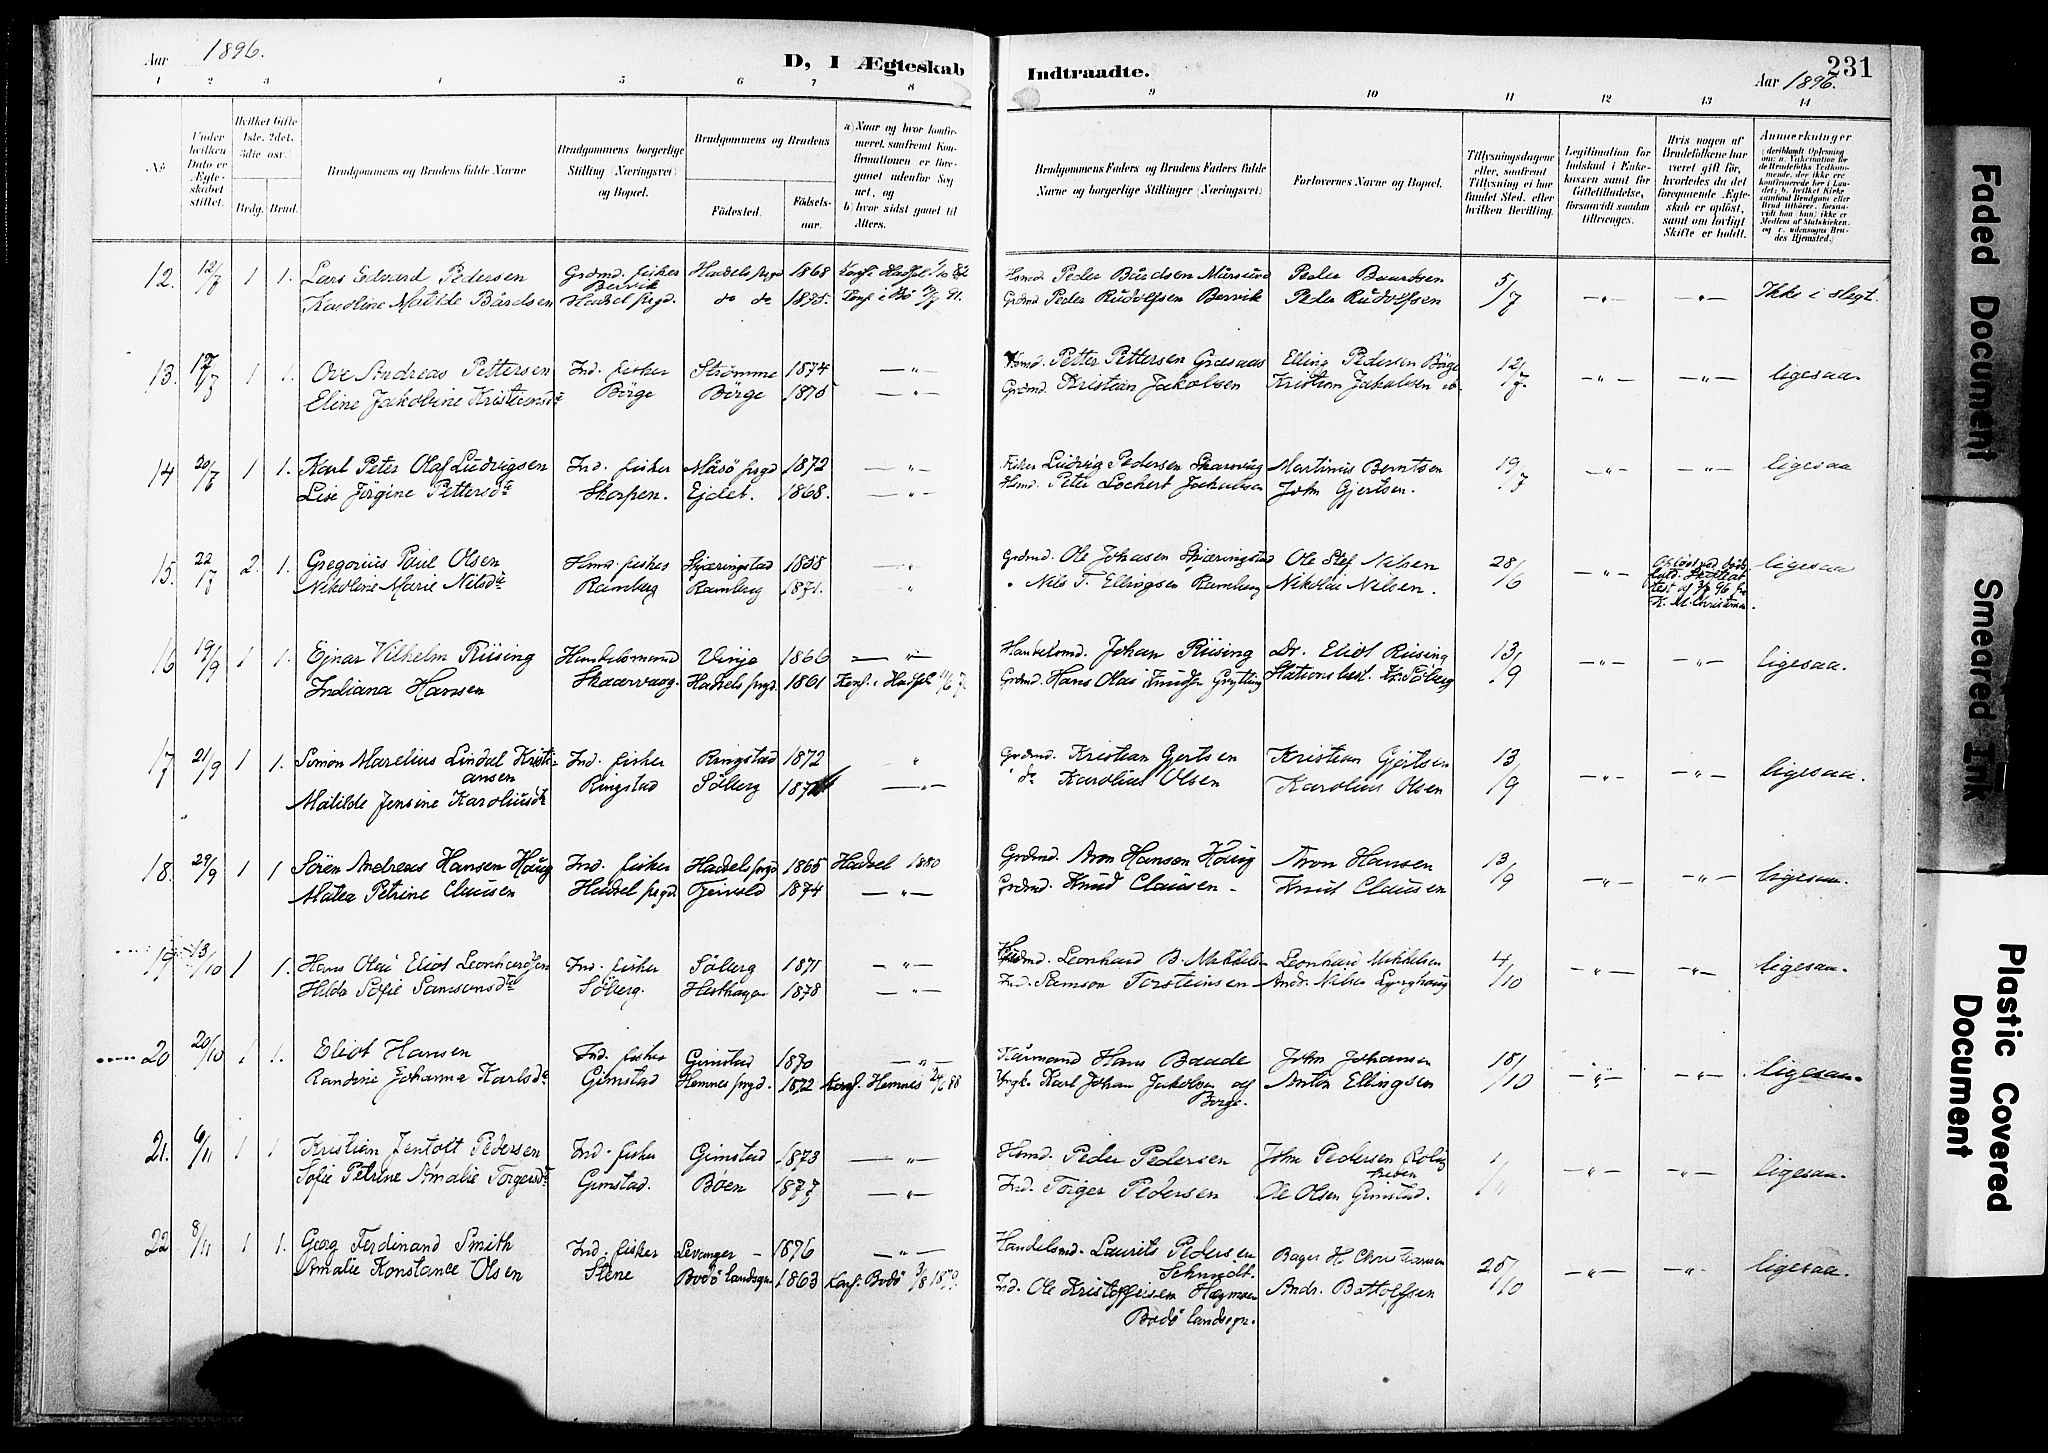 Aar 1896.
D, I Ægteskab
Indtraadte.
231
Aar 1896.
1 2 3 4 5 6 7 8 9 10 11 12 13 14
No.
Under hvilken Dato er Ægteskabet stiftet.
Hvilket Gifte 1ste. 2det. 3die osv.
Bedg. Brud.
Brudgommens og Brudens fulde Navne
Brudgommens borgerlige Stilling (Næringsvei) og Bopæl.
Brudgommens og Brudens
Födested.
Födselsaar.
a) Naar og hvor konfirmeret, saafremt Konfirmationen er foregaaet udenfor Sognet, og
b) hvor sidst gaaet til Alters.
Brudgommens Faders og Brudens Faders fulde Navne og borgerlige Stillinger (Næringsvei)
Forlovernes Navne og Bopæl.
Tillysningsdagene eller, saafremt Tillysning ei har fundet Sted, efter hvilken Bevilling.
Legitimation for Indskud i Enkekassen samt for Giftetilladelse, forsaavidt saadan tiltrænges.
Hvis nogen af Brudefolkene har været gift før, hvorledes da det foregaaende Ægteskab er oplöst, samt om lovligt Skifte er holdt.
Anmærkninger
12. 12/7 1 1. Lars Edvard Pedersen Grdmd. fisker Hadsels prgd 1868 Konf. Hadsel Hsmd. Peder Bårdsen Peder Baardsen 5/7 —„— —„— Ikke i slegt.
Karoline Matilde Bårdsen Bervik Hadsel prgd. do do 1875. Konf. i Bö Grdmd Peder Rudolfsen Bervik Peder Rudolfsen
13. 17/7 1 1. Ove Andreas Pettersen Ind. fisker Strömme 1874 —„— Hsmd. Petter Pettersen Elling Pedersen Börge 12/7. —„— —„— ligesaa.
Eline Jakobine Kristiansdt Börge Börge 1875 —„— Grdmd. Kristian Jakobsen Kristian Jakobsen
14 20/7 1 1. Karl Peter Olaf Ludvigsen Ind. fisker Måsö prgd 1872 —„— Fisker Ludvig Pedersen Skarsvåg Martinus Berntsen 19/7 —„— —„— ligesaa
Lise Jörgine Pettersdt Skorpen. Ejdet. 1868. —„— Hsmd. Peter Lochert Jakobsen John Gjertsen.
15. 22/7 2. 1. Gregorius Paul Olsen Hsmd. fisker Skjæringstad 1858 „ Grdmd. Ole Johnsen Skjæringstad Ole Stef Nilsen 28/6 —„— ligesaa
Nikoline Marie Nilsdt Ramberg Ramberg 1871. „ „ Nils T. Ellingsen Ramberg Nikolai Nilsen.
16 19/9 1 1. Ejnar Vilhelm Riising Handelsmand 1866 —„— Handelsmd. Johan Riising Dr. Eliot Riising 13/9 —„— —„— ligesaa.
Indiana Hansen Skaarvaag. Hadsels prgd. 1861 Konf. i Hadsel Grdmd. Hans Olai Knudsen Grytting Söberg
17 21/9 1 1. Simon Marelius Lindal Kristiansen Ind. fisker Ringstad 1872 „ Grdmd. Kristian Gjertsen Kristian Gjertsen 13/9 —„— —„— ligesaa.
Matilde Jensine Karoliusdt Ringstad Söberg —„— do Karolius Olsen Karolius Olsen
18. 29/9 1 1 Sören Andreas Hansen Haug Ind. fisker Hadsels prgd 1865 Hadsel 1880 Grdmd. Aron Hansen Haug Aron Hansen 13/9 —„— —„— ligesaa.
Matea Petrine Clausen Hadsel prgd. 1874 —„— Grdmd. Knud Clausen Knut Clausen
19 13/10 1 1. Hans Olai Eliot Leonhardsen Ind. fisker Söberg 1871 —„— Leonhard B. Mikkelsen Leonhard Mikkelsen 4/10 —„— —„— ligesaa.
Hilda Sofie Samsonsdt Söberg. 1878 —„— Ind. Samson Torsteinsen Andr. Nilsen
20 20/10 1 1. Eliot Hansen Ind. fisker Gimstad 1870 —„— Kårmand Hans Baade John Johansen 18/10 —„— —„— ligesaa.
Randine Johanna Karlsdt Gimstad Hemnes prgd. 1872 Konf. Hemnes 88 Karl Johan Jakobsen af Borge. Anton Ellingsen
21. 6/11 1 1 Kristian Jentoft Pedersen Ind. fisker Gimstad 1873 —„— Hsmd. Peder Pedersen John Pedersen 1/11 —„— —„— ligesaa.
Sofie Petrine Amalie Torgersdt Gimstad. Böen 1877 —„— Ind. Torger Pedersen Ole Olsen Gimstad.
22 8/11 1 1. Georg Ferdinand Smith Ind. fisker Levanger 1876 —„— Handelsmd. Laurits Pedersen Schmidt. Bager H. Christiansen 25/10 —„— —„— ligesaa.
Amalie Konstance Olsen Stene Bodö landsogn 1863 Konf. Bodö Ind. Ole Kristoffersen Bodö landsogn. Andr. Bottolfsen
Faded Document
Smeared Ink
Plastic Covered Document